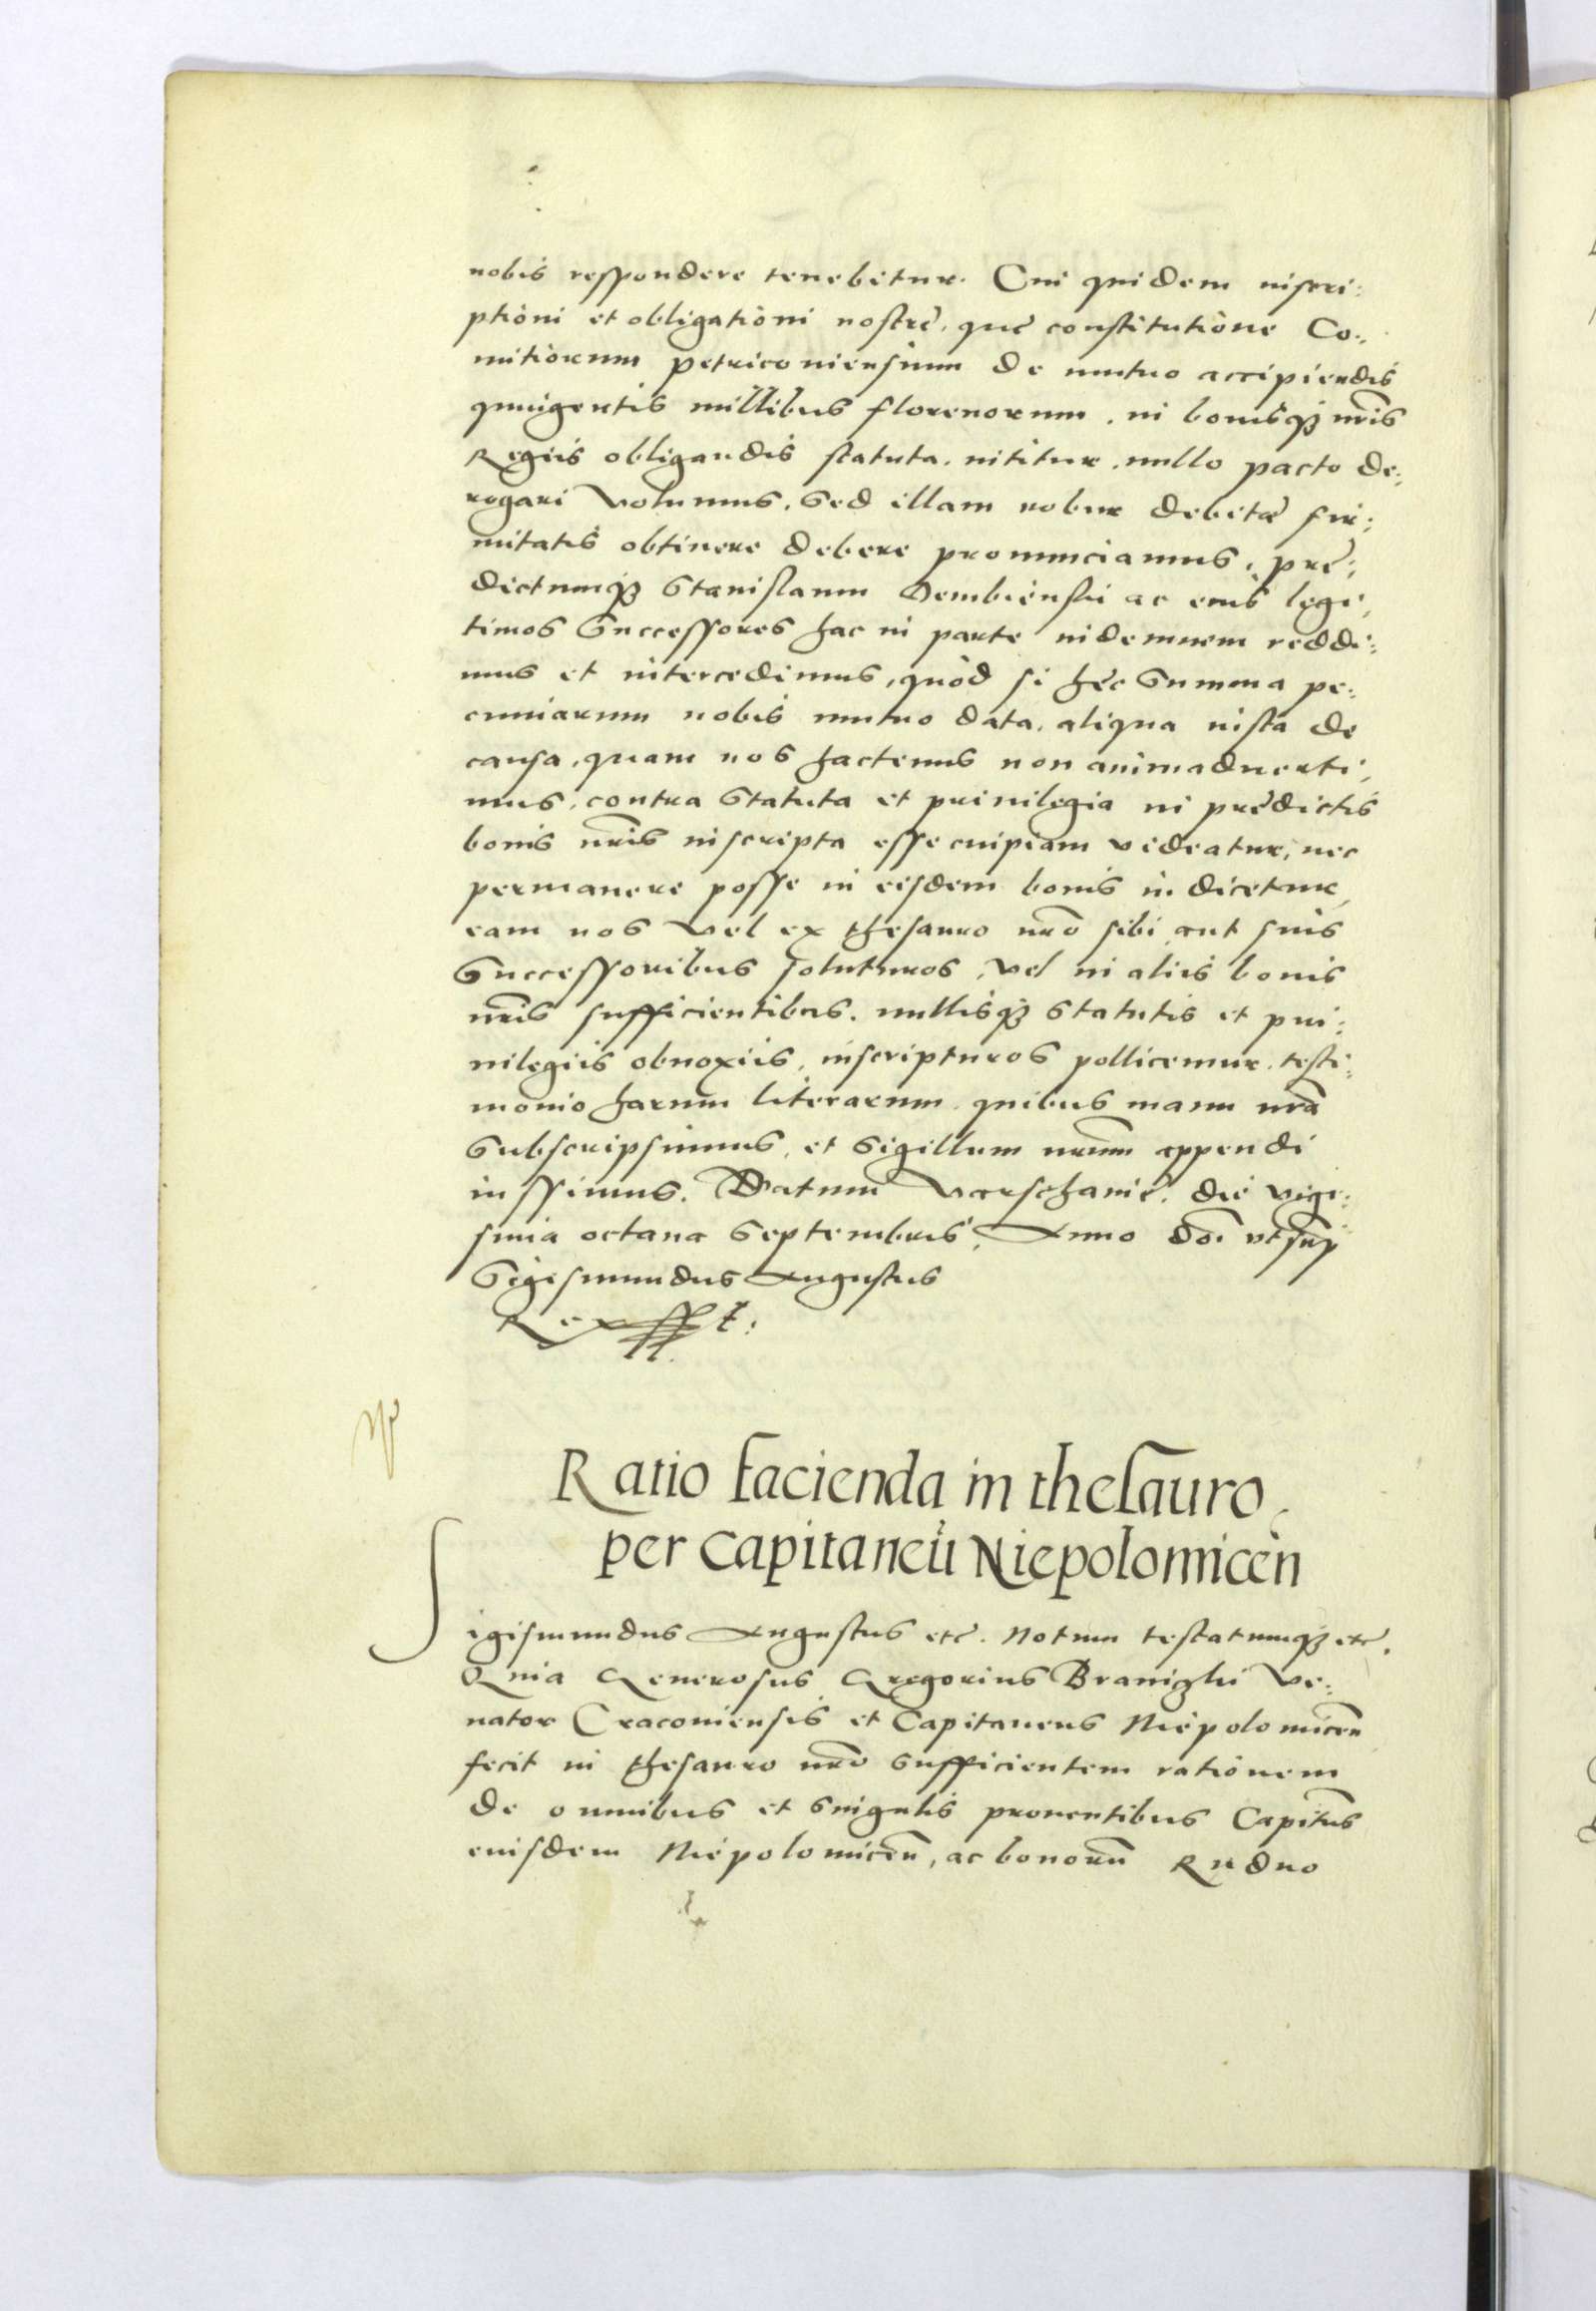 nobis respondere tenebitur. Cui quidem inscri:
ptioni et obligationi nostrę, quę constitutione Co:
mitiorum petriconiensium de mutuo accipiendis
quingentis millibus florenorum, in bonisq3 nr̃is
Regiis obligandis statuta, nititur, nullo pacto de:
rogari volumus, sed illam robur debitæ fir:
mitatis obtinere debere pronunciamus, prę:
dictumq3 Stanislaum Dembienski ac eius legi:
timos Successores hac in parte indemnem reddi:
mus et intercedimus, quòd si hęc Summa pe:
cuniarum nobis mutuo data, aliqua iusta de
causa, quam nos hactenus non animaduerti:
mus, contra Statuta et priuilegia in prędictis
bonis nr̃is inscripta esse cuipiam videatur, nec
permanere posse in eisdem bonis iudicetur,
eam nos vel ex thesauro nr̃o sibi aut suis
Successoribus soluturos, vel in aliis bonis
nr̃is sufficientibus, nullisq3 statutis et pri:
uilegiis obnoxiis, inscripturos pollicemur, testi:
monio harum literarum quibus manu nr̃a
Subscripsimus, et Sigillum nr̃um appendi
iussimus. Datum Varschauię, die vige:
sima octaua Septembris, Anno dõi vt sup
Sigismundus Augustus
Rex sst:
Ratio facienda in thesauro
per Capitaneũ Niepolomiceñ
Sigismundus Augustus etc. Notum testatumq3 etc.
Quia Generosus Gregorius Branighi Ve:
nator Cracouiensis et Capitaneus Niepolomiceñ
fecit in thesauro nr̃o Sufficientem rationem
de omnibus et Singulis prouentibus Capitũs
eiusdem Niepolomiceñ, ac bonorũ Rudno